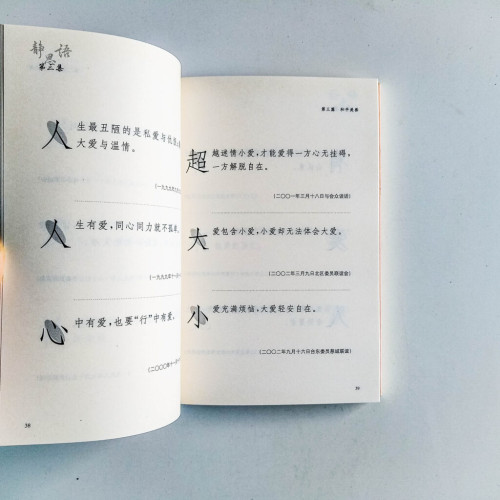 静思语
第三集
人生最丑陋的是私爱与
大爱与温情。
(一九九九年九月
人生有爱,同心同力就不孤单。
(一九九九年十一
心中有爱,也要“行”中有爱。
(二〇〇〇年十一
38
第三篇
超越迷情小爱,才能爱得一方心无挂碍,
一方解脱自在。
(二〇〇一年三月十八日与会众谈话)
大爱包含小爱,小爱却无法体会大爱。
(二〇〇二年三月九日北区委员联谊会)
小爱充满烦恼,大爱轻安自在。
(二〇〇二年九月十六日台东委员慈诚联谊)
39